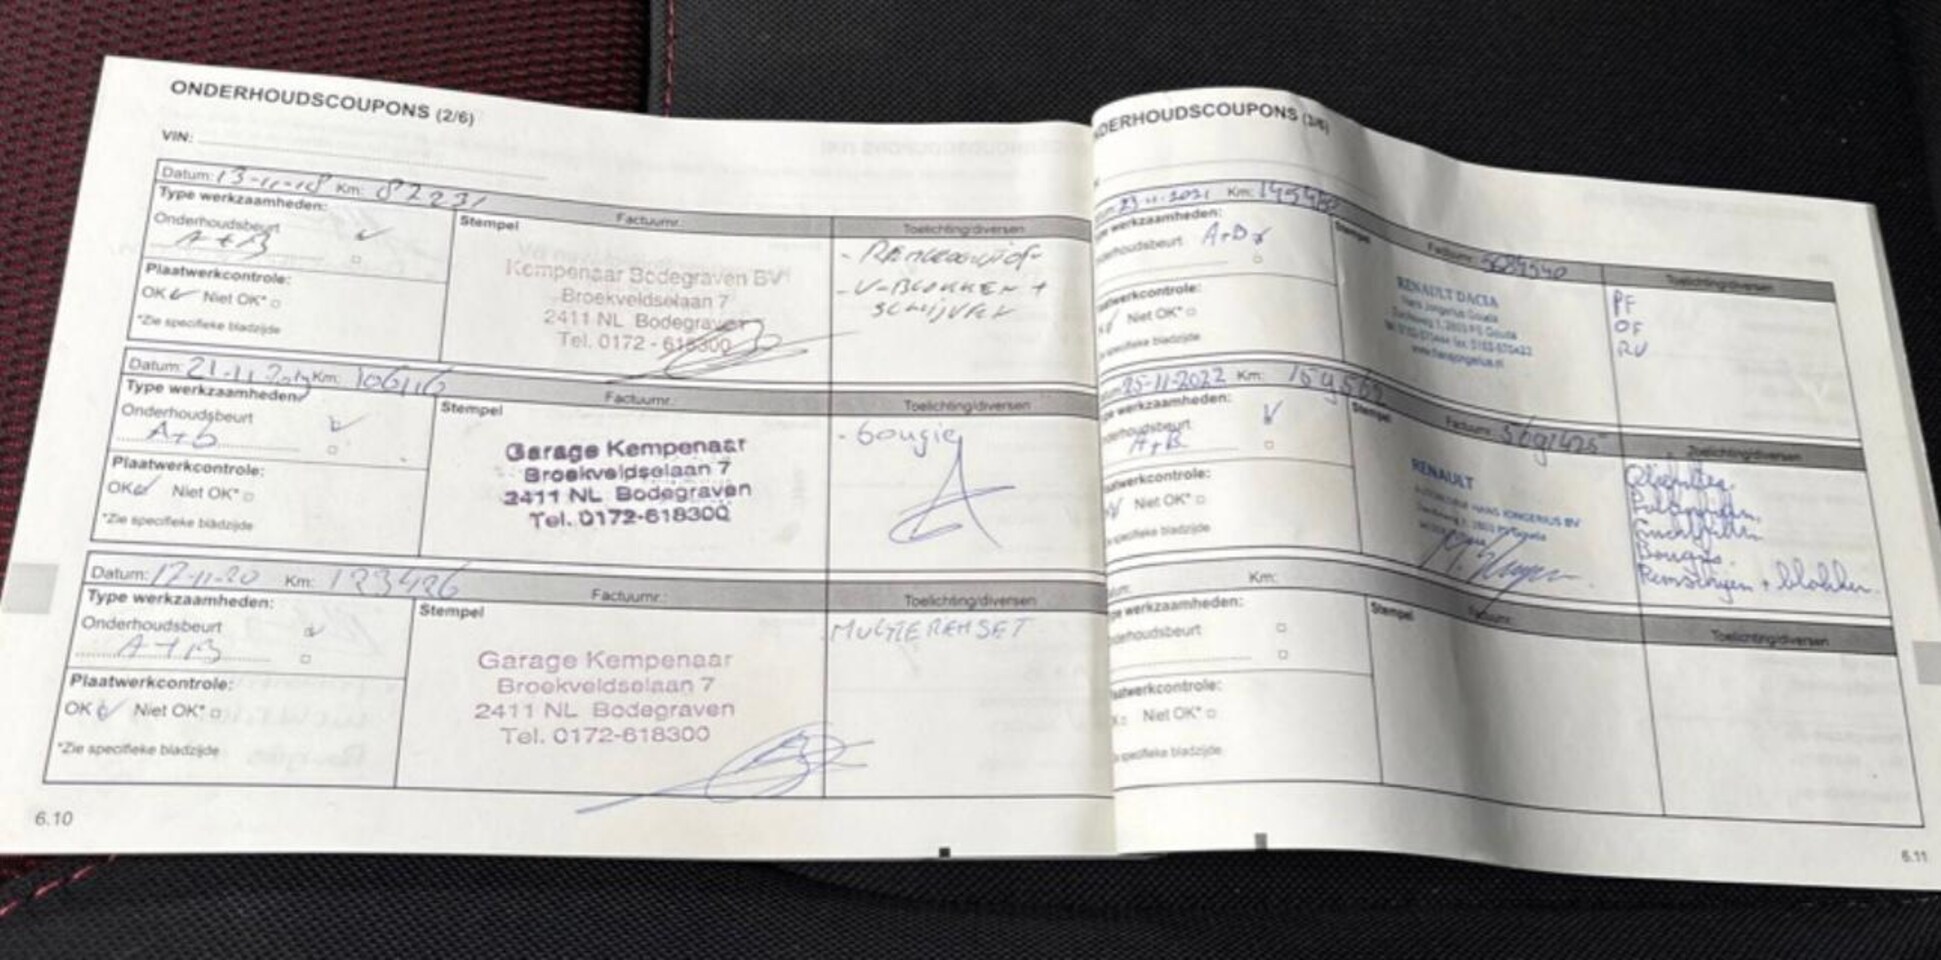 ONDERHOUDSCOUPONS (2/6)
VIN:
Datum: 13-11-18 Km: 82231
Type werkzaamheden:
Stempel
Factuurnr.:
Toelichting/diversen
Onderhoudsbeurt
A+B
Plaatwerkcontrole:
OK Niet OK*
*Zie specifieke bladzijde
Kempenaar Bodegraven BV
Broekveldselaan 7
2411 NL Bodegraven
Tel. 0172 - 618300
- Remvloeistof
- V-Blokken +
schijven
Datum: 21-11-2019 Km: 106416
Type werkzaamheden:
Stempel
Factuurnr.:
Toelichting/diversen
Onderhoudsbeurt
A+B
Plaatwerkcontrole:
OK Niet OK*
*Zie specifieke bladzijde
Garage Kempenaar
Broekveldselaan 7
2411 NL Bodegraven
Tel. 0172-618300
- bougie
Datum: 17-11-20 Km: 123426
Type werkzaamheden:
Stempel
Factuurnr.:
Toelichting/diversen
Onderhoudsbeurt
A+B
Plaatwerkcontrole:
OK Niet OK*
*Zie specifieke bladzijde
Garage Kempenaar
Broekveldselaan 7
2411 NL Bodegraven
Tel. 0172-618300
MULTIRIEMSET
6.10
NDERHOUDSCOUPONS (3/6)
23-11-2021 Km:
werkzaamheden:
Stempel
Factuurnr.:
Toelichting/diversen
derhoudsbeurt A+B
aatwerkcontrole:
Niet OK*
specifieke bladzijde
RENAULT DACIA
Hans Jongerius Gouda
PF
OF
RV
25-11-2022 Km: 159565
werkzaamheden:
Stempel
Factuurnr.: 5691425
Toelichting/diversen
derhoudsbeurt
A+B
aatwerkcontrole:
Niet OK*
specifieke bladzijde
RENAULT
HANS JONGERIUS BV
Luchtfilter
Bougies
Remschijven + blokken
Km:
werkzaamheden:
Stempel
Factuurnr.:
Toelichting/diversen
derhoudsbeurt
aatwerkcontrole:
Niet OK*
specifieke bladzijde
6.11